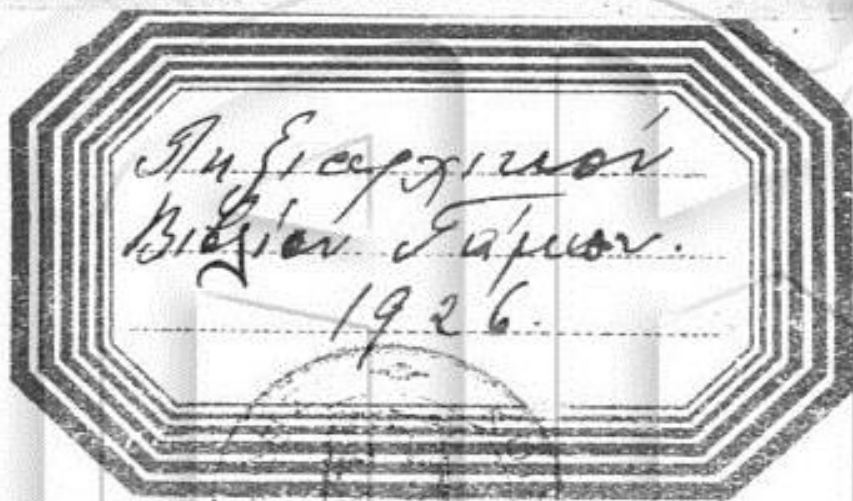 Ληξιαρχικόν
Βιβλίον Γάμων.
1926.